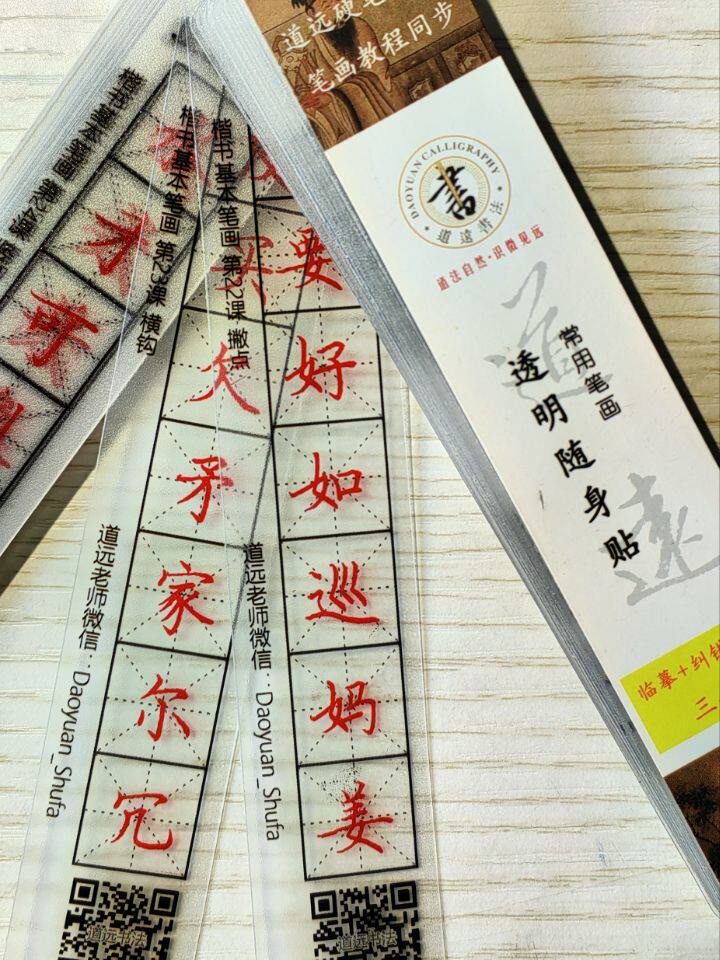 道远硬笔
笔画教程同步
DAOYUAN CALLIGRAPHY
書
道遠书法
道法自然·识微见远
道
遠
常用笔画
透明随身贴
临摹+纠错
三
楷书基本笔画 第22课 撇点
要
好
如
巡
妈
姜
道远老师微信：Daoyuan_Shufa
道远书法
楷书基本笔画 第23课 横钩
买
欠
矛
家
尔
冗
道远老师微信：Daoyuan_Shufa
道远书法
楷书基本笔画 第24课